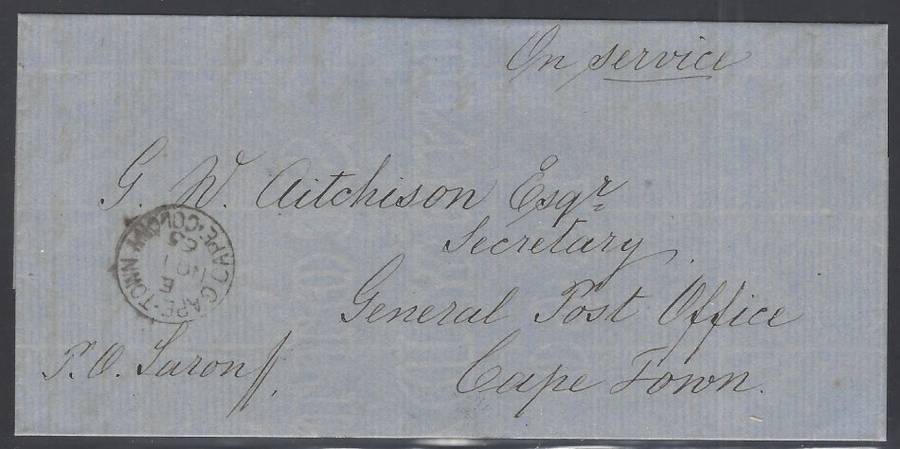 On service
G. W. Aitchison Esqr.
Secretary
General Post Office
Cape Town.
P.O. Saron
CAPE·TOWN CAPE·COLONY